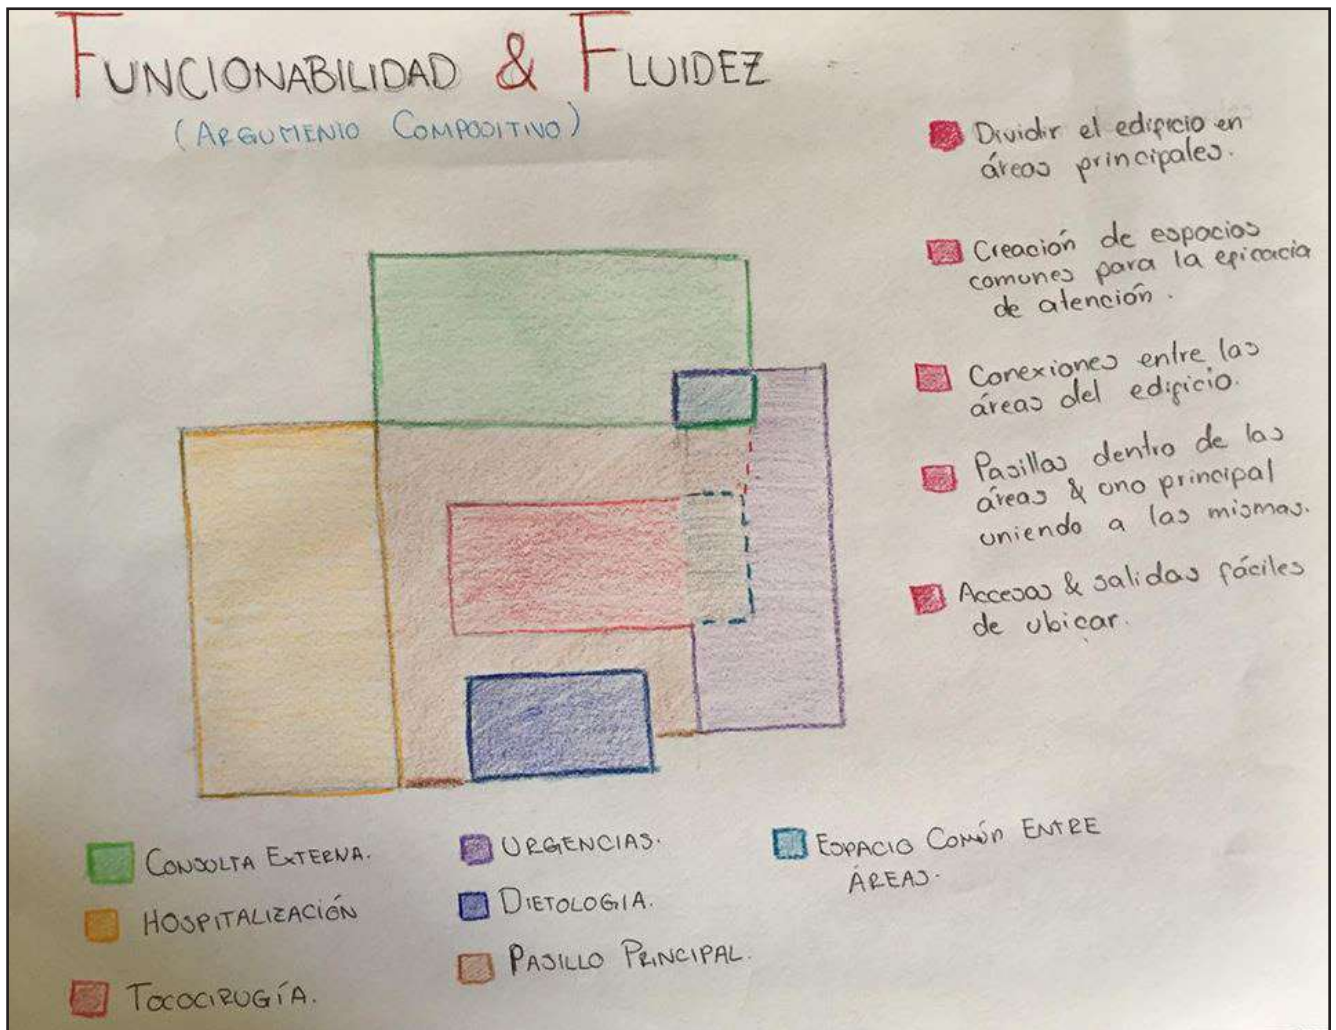 FUNCIONABILIDAD & FLUIDEZ
(ARGUMENTO COMPOSITIVO)
Dividir el edificio en
áreas principales.
Creación de espacios
comunes para la eficacia
de atención.
Conexiones entre las
áreas del edificio.
Pasillos dentro de las
áreas & uno principal
uniendo a las mismas.
Accesos & salidas fáciles
de ubicar.
CONSULTA EXTERNA.
HOSPITALIZACIÓN
TOCOCIRUGÍA.
URGENCIAS.
DIETOLOGIA.
PASILLO PRINCIPAL.
ESPACIO COMÚN ENTRE
ÁREAS.